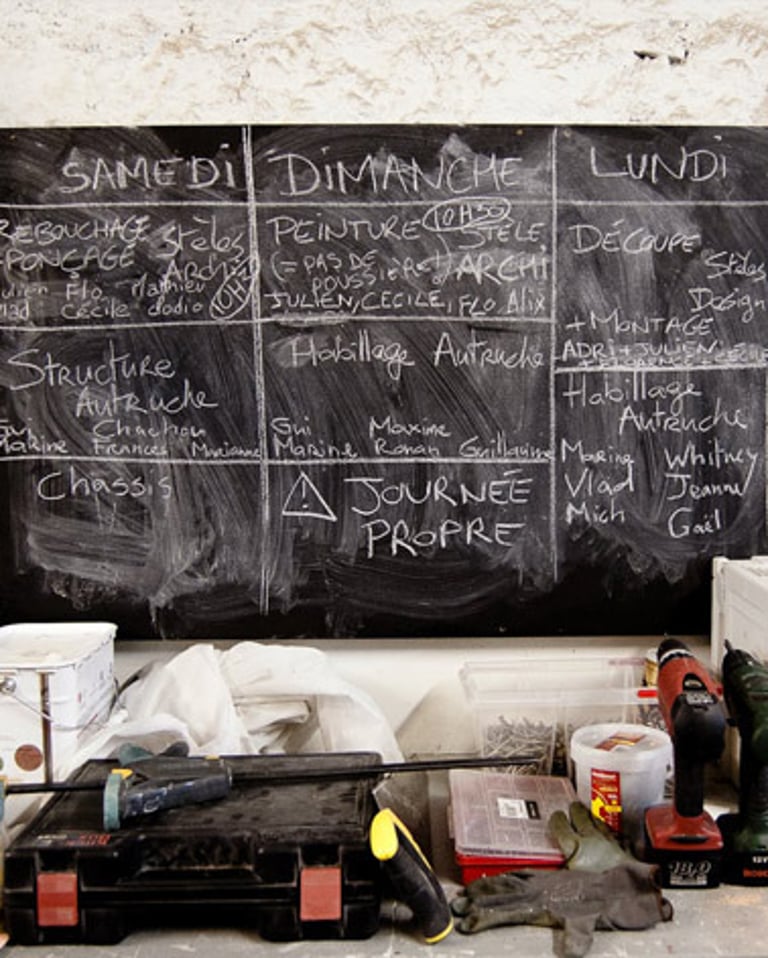 SAMEDI
REBOUCHAGE
PONÇAGE
Stèles
Archi
Julien Flo Mathieu
Vlad Cécile dodio
10H
Structure
Autruche
Gui Chachou
Marine Frances Marianne
Chassis
DIMANCHE
PEINTURE 10H30
STÈLE
(= PAS DE
POUSSIÈRE!) ARCHI
JULIEN, CECILE, FLO Alix
Habillage Autruche
Gui Maxime
Marine Ronan Guillaume
⚠ JOURNÉE
PROPRE
LUNDI
DÉCOUPE
Stèles
Design
+ MONTAGE
ADRI + JULIEN
Habillage
Autruche
Marine Whitney
Vlad Jeanne
Mich Gaël
18.0
12V